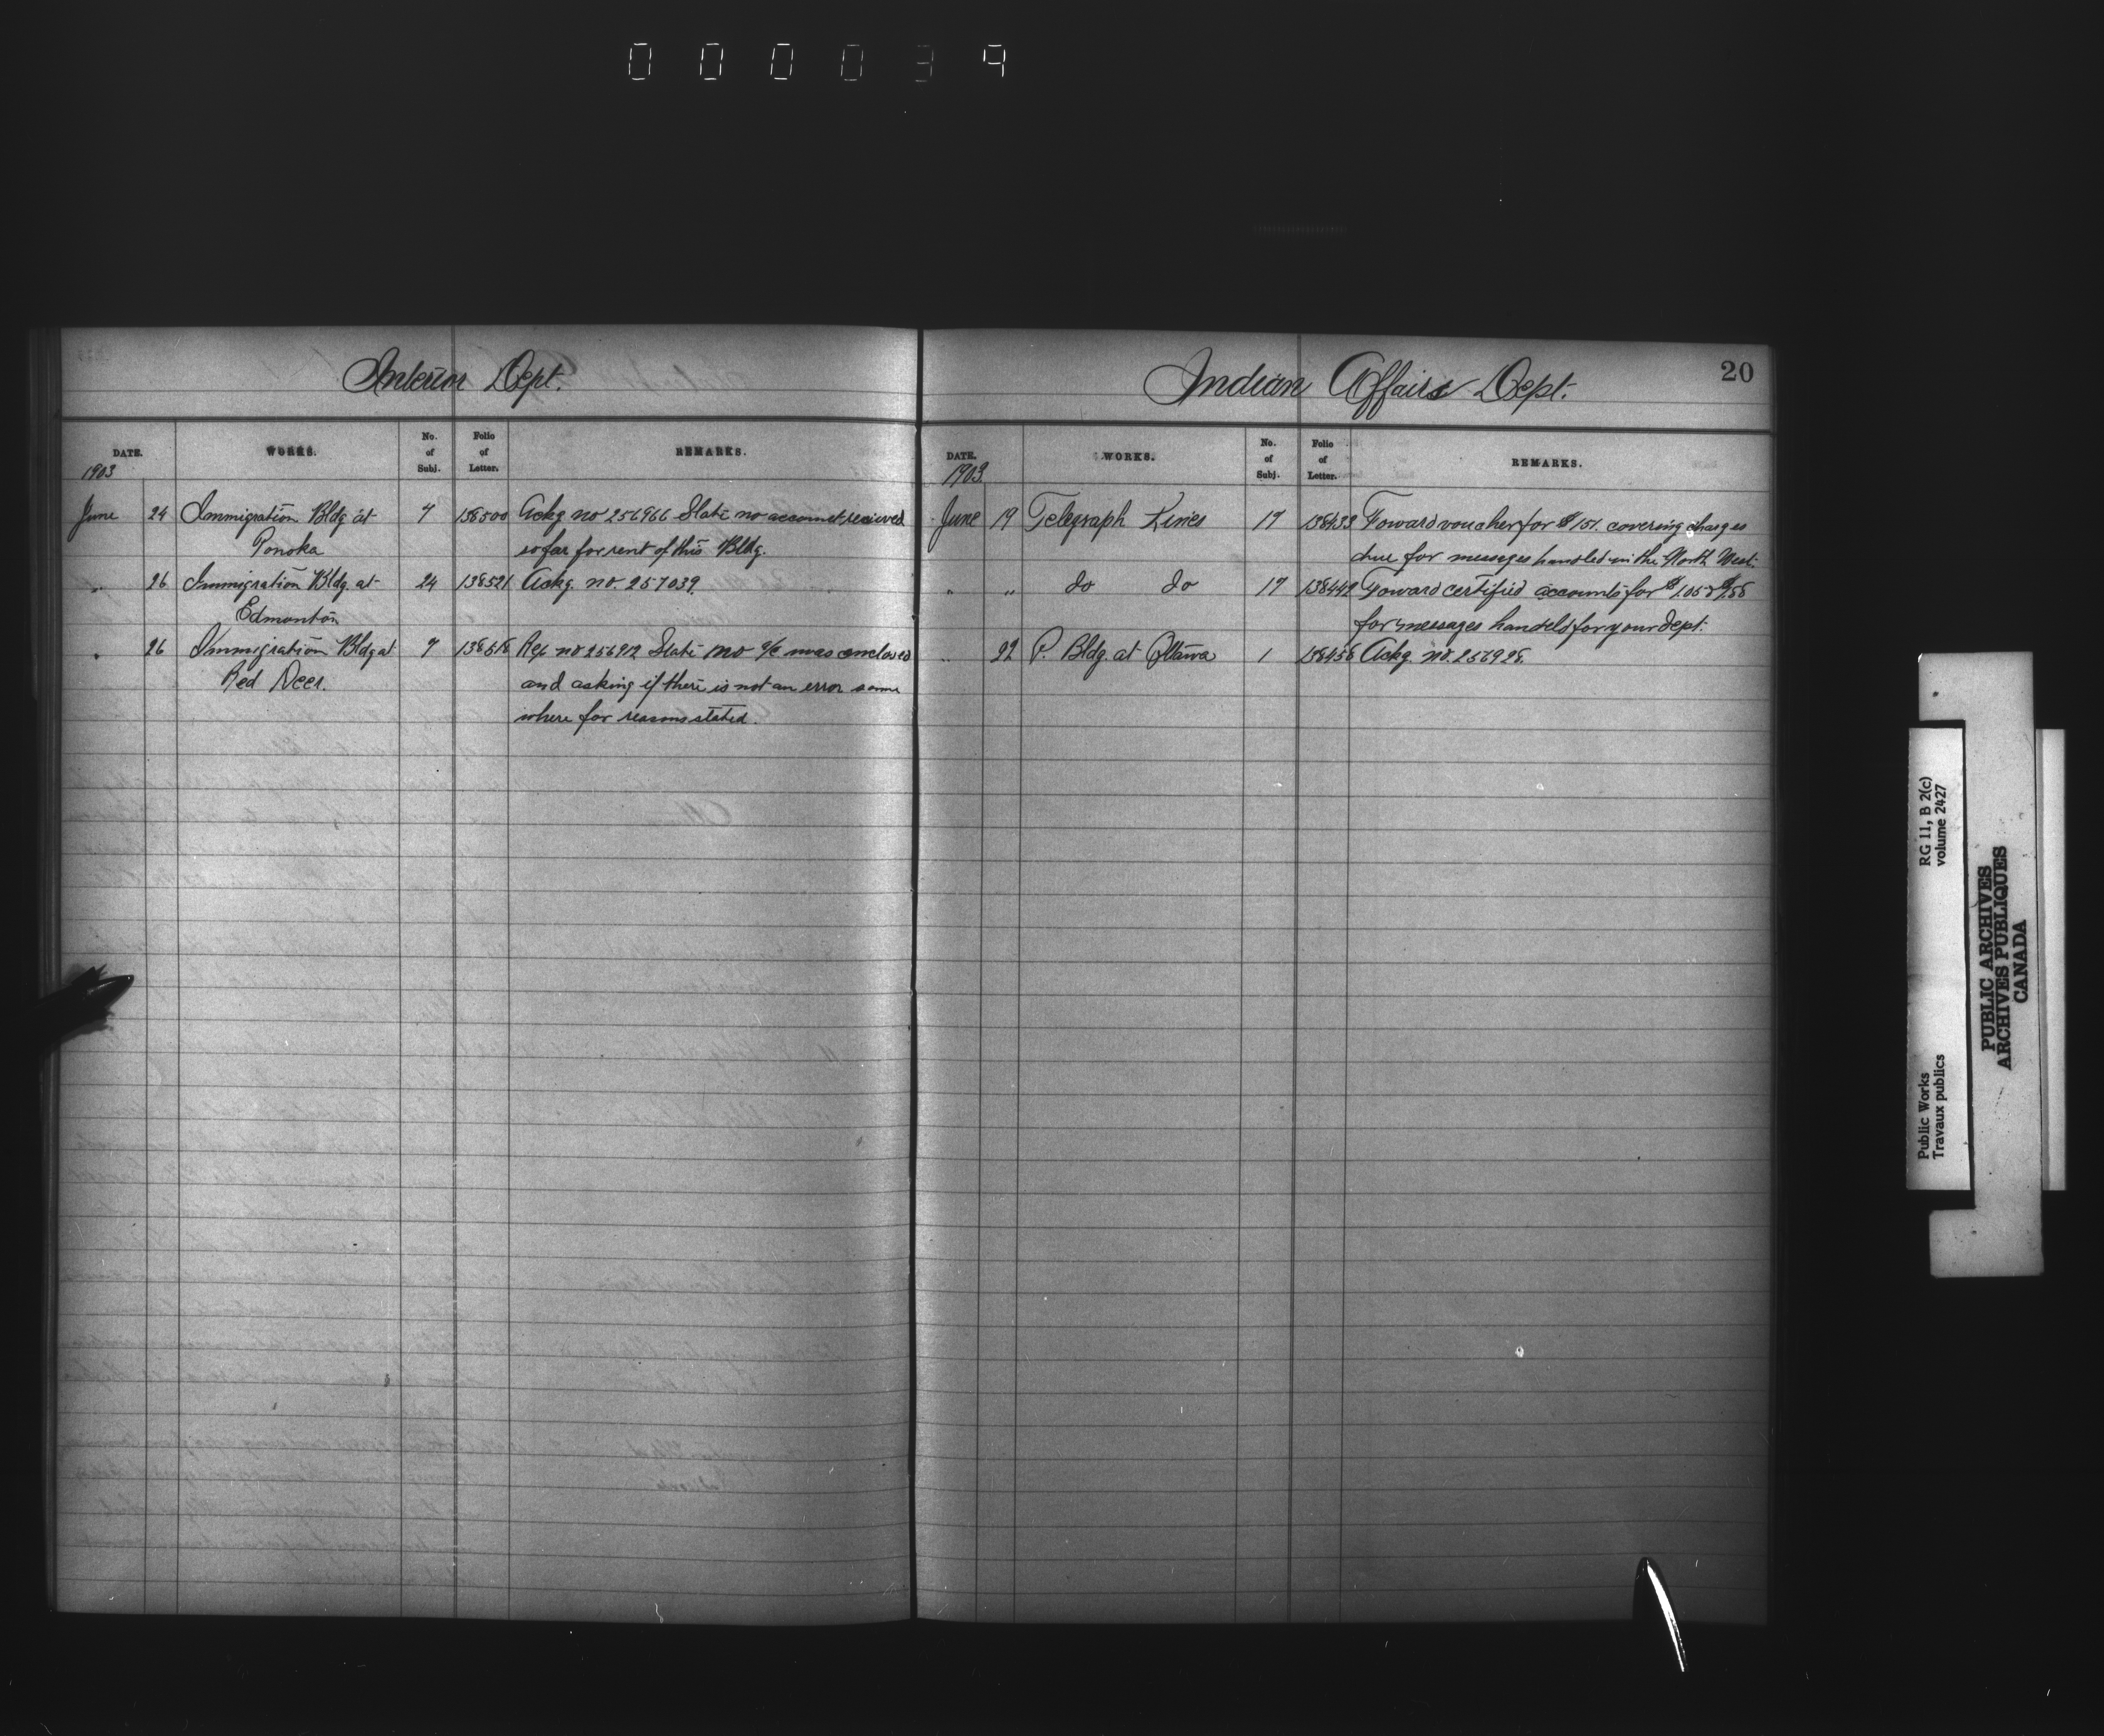 000039
Interior Dept.
DATE. WORKS. No. of Subj. Folio of Letter. REMARKS.
1903
June 24 Immigration Bldg at 7 138500 Ackg no 256966 State no account recieved
Ponoka so far for rent of this Bldg.
" 26 Immigration Bldg at 24 138521 Ackg. no. 257039.
Edmonton
" 26 Immigration Bldg at 7 138518 Rep no 256912 State no a/c was enclosed
Red Deer. and asking if there is not an error some
where for reasons stated.
Indian Affairs Dept. 20
DATE. WORKS. No. of Subj. Folio of Letter. REMARKS.
1903.
June 19 Telegraph Lines 17 138433 Foward voucher for $151. covering charges
due for messeges handled in the North West.
" " do do 17 138442 Foward certified accounts for
for messages handeld for your Dept.
" 22 P. Bldg. at Ottawa 1 138458 Ackg. no. 256928.
Public Works RG 11, B 2(c)
Travaux publics volume 2427
PUBLIC ARCHIVES
ARCHIVES PUBLIQUES
CANADA